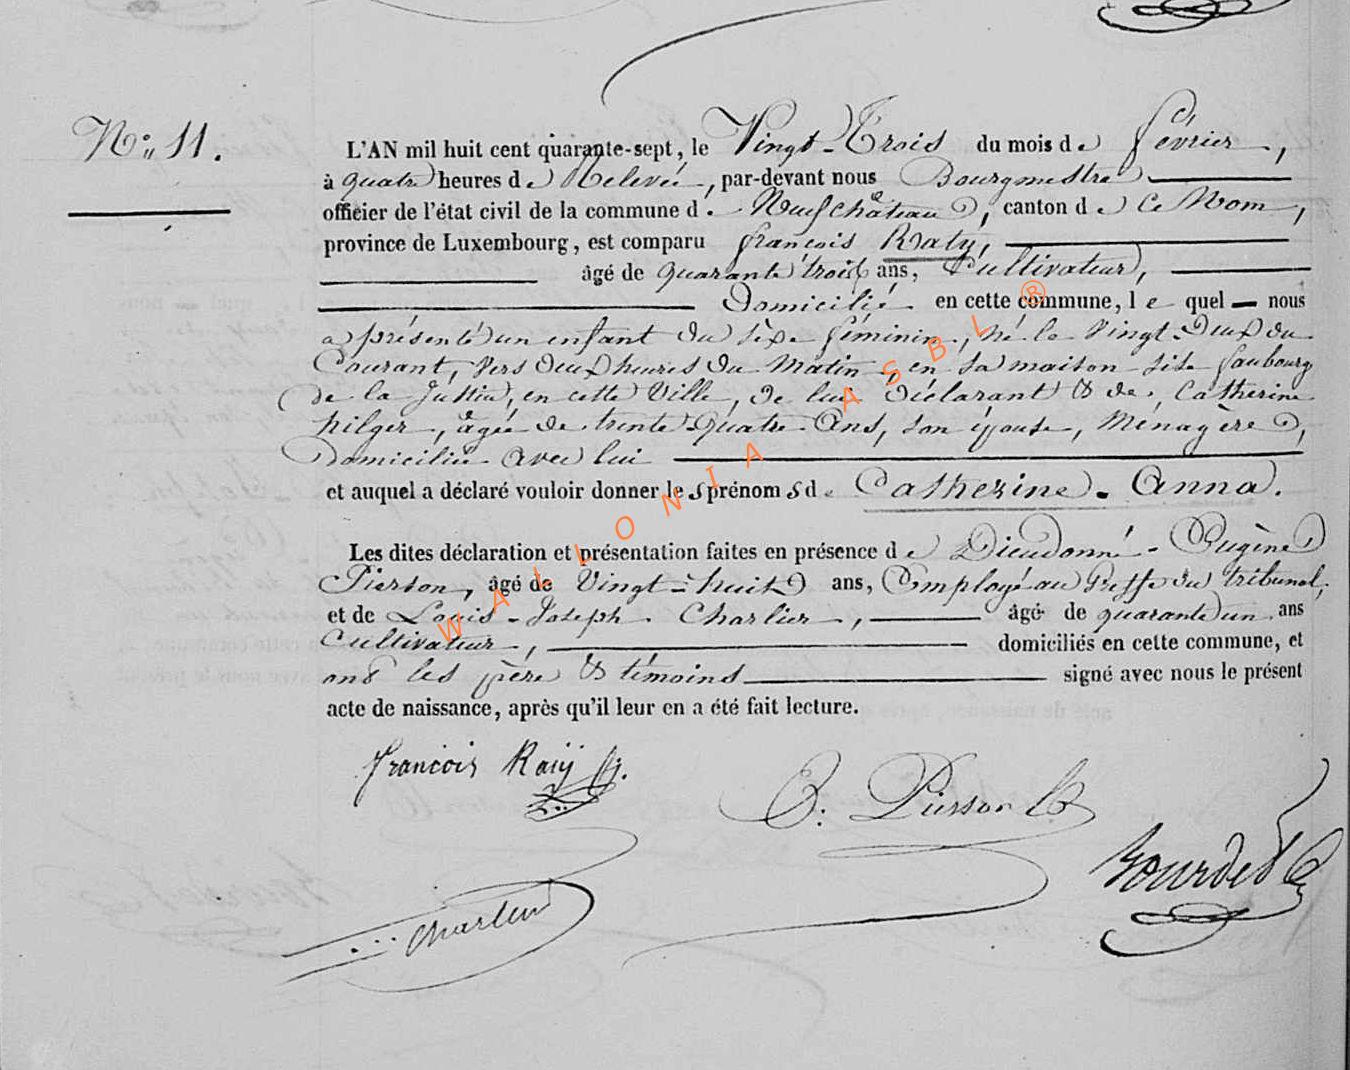 N° 11.
L'AN mil huit cent quarante-sept, le Vingt-Trois du mois de février,
à quatre heures de Relevée, par-devant nous Bourgmestre
officier de l'état civil de la commune de Neufchâteau, canton de Ce Nom,
province de Luxembourg, est comparu françois Raty,
âgé de quarante trois ans, Cultivateur,
Domicilié en cette commune, le quel nous
a présenté un enfant du sèxe féminin, né le Vingt-Deux du
Courant, Vers deux heures du Matin, en sa maison sise faubourg
de la Justice, en cette Ville, de lui déclarant & de Catherine
hilger, âgée de trente-Quatre Ans, son épouse, Ménagère,
Domiciliée avec lui
et auquel a déclaré vouloir donner les prénoms de Catherine-Anna.
Les dites déclaration et présentation faites en présence de Dieudonné-Eugène
Pierson, âgé de Vingt-huit ans, Employé au Greffe du tribunal,
et de Louis-Joseph Charlier, âgé de quarante un ans
Cultivateur, domiciliés en cette commune, et
ont les père & témoins signé avec nous le présent
acte de naissance, après qu'il leur en a été fait lecture.
françois Raty
E: Pierson
Bourdet
Charlier
WALLONIA ASBL ®